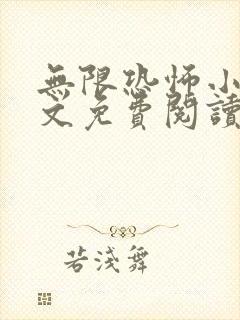 無限恐怖小
文免費閱讀
若淺舞